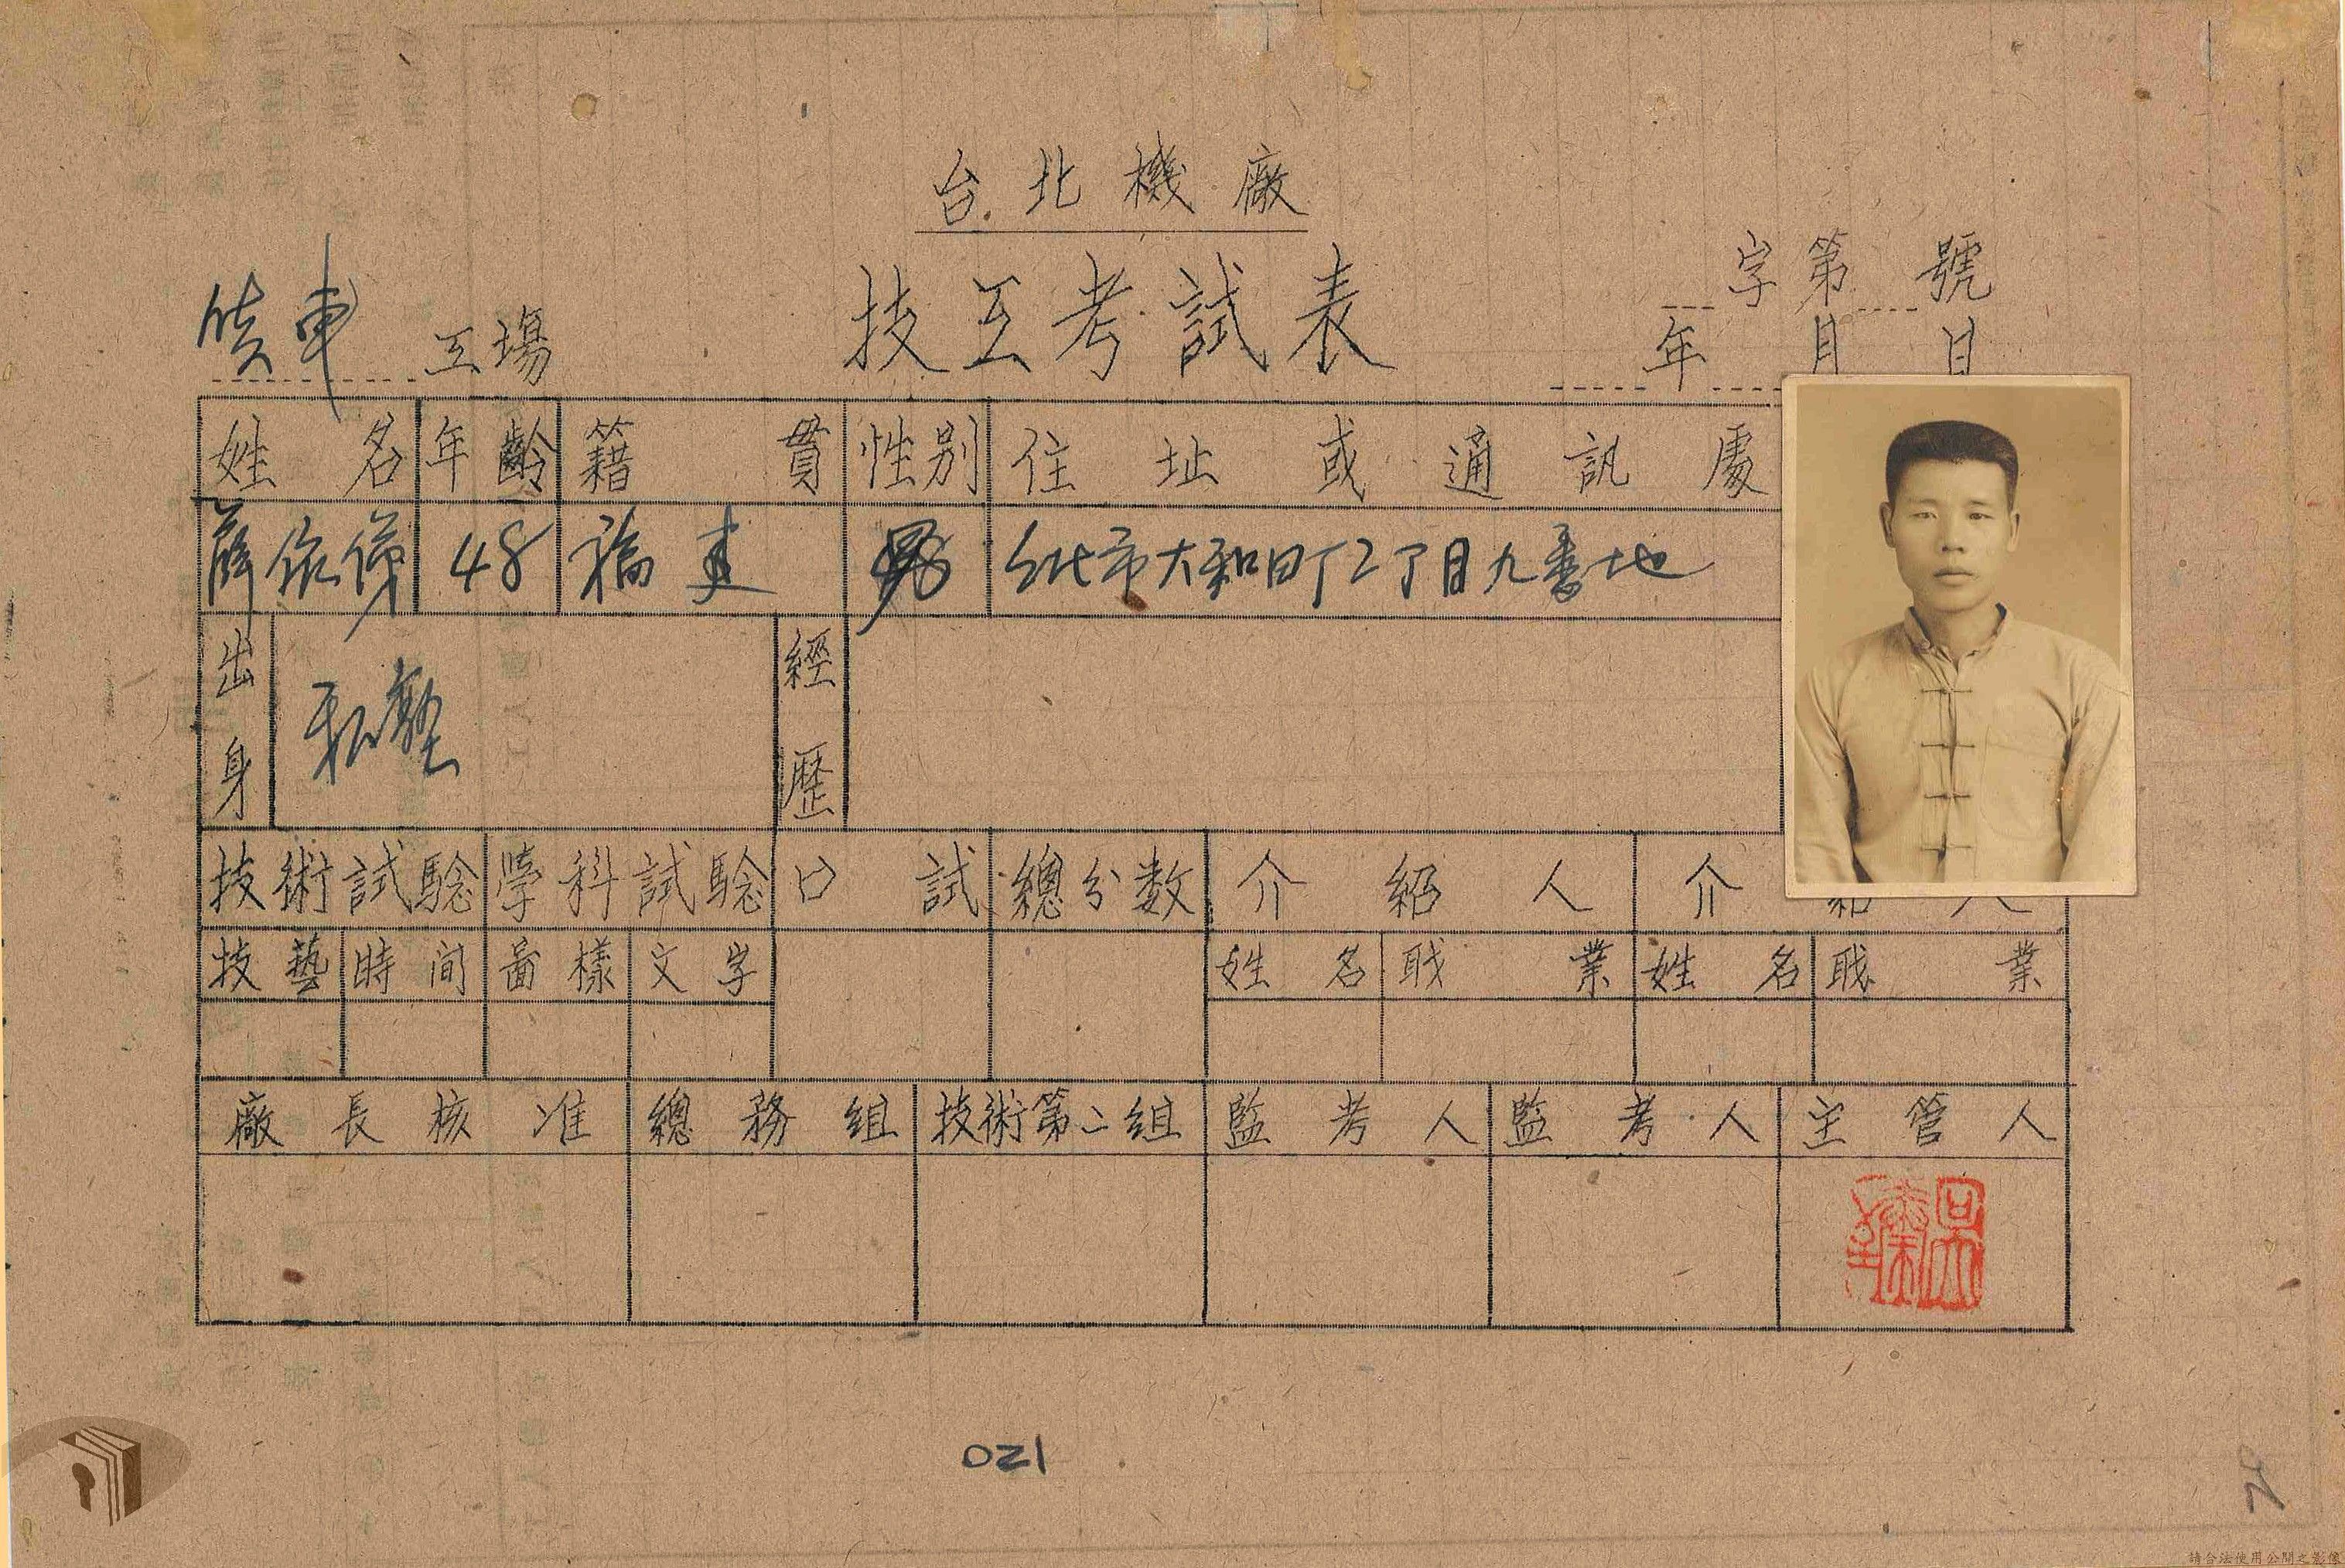 台北機廠
技工考試表
字第 號
年 月 日
車 工場
姓名 年齡 籍貫 性別 住址或通訊處
薛依 48 福建 男 台北市大和町2丁目九番地
出身 私塾 經歷
技術試驗 學科試驗 口試 總分数 介紹人 介紹人
技藝 時间 圖樣 文字 姓名 職業 姓名 職業
廠長核准 總務組 技術第二組 監考人 監考人 主管人
021
請合法使用公開之影像